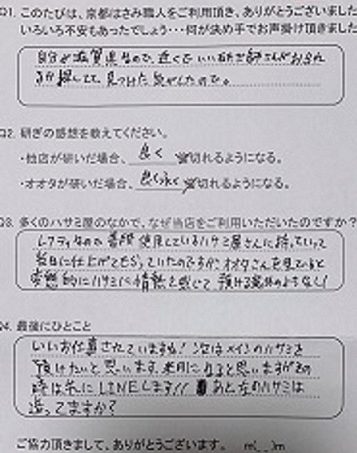 Q1. このたびは、京都はさみ職人をご利用頂き、ありがとうございました
いろいろ不安もあったでしょう・・・何が決め手でお声掛け頂きました
自分が滋賀県なので、近くでいい研ぎ師さんがおられ
るか探してて見つけた気がしたので。
Q2. 研ぎの感想を教えてください。
・他店が研いだ場合、良く 切れるようになる。
・オオタが研いだ場合、良く永く 切れるようになる。
Q3. 多くのハサミ屋のなかで、なぜ当店をご利用いただいたのですか?
レフティなので普段使用しているハサミ屋さんに持っていって
後日に仕上げてもらっていたのですがオオタさんを見ていると
変態的にハサミに情熱を感じて預ける
Q4. 最後にひとこと
いいお仕事されていますね!次はメインのハサミを
預けたいと思います。
時は先にLINEします!!あと左のハサミは
造ってますか?
ご協力頂きまして、ありがとうございます。 m(__)m